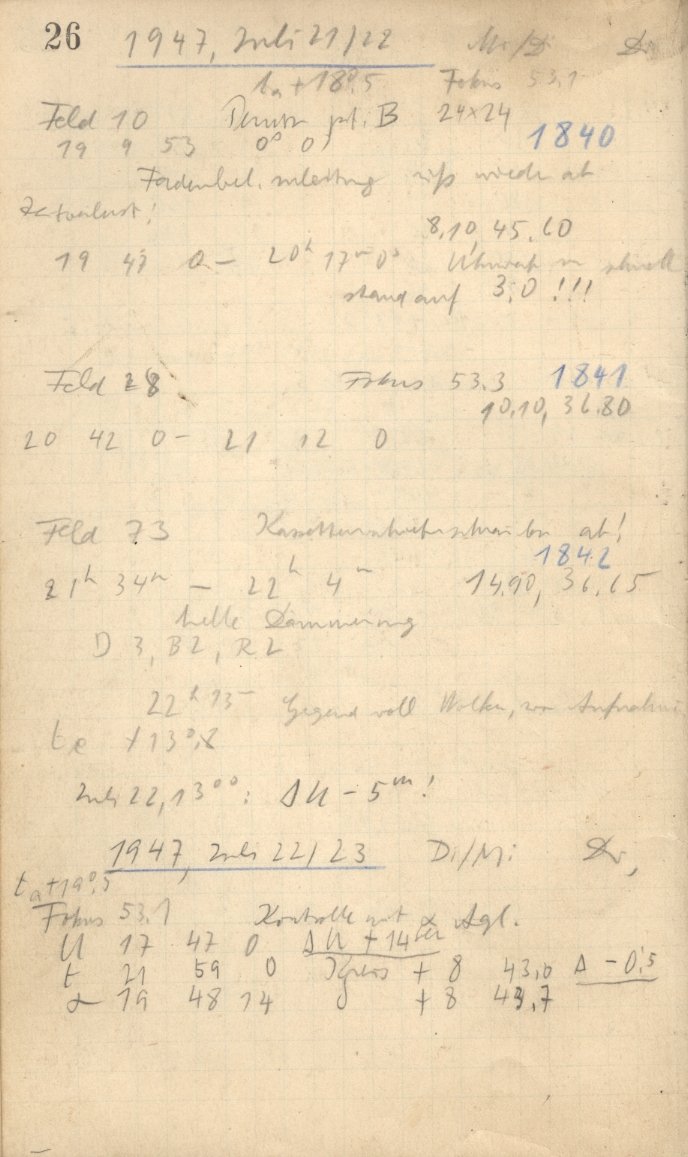 26 1947, Juli 21/22 Mo/Di Dr,
ta + 18°.5 Fokus 53.1
Feld 10 B 24×24
19 9 53 0° 0' 1840
riß wieder ab
Zeitverlust!
8,10, 45.60
19 47 0 – 20h 17m 0s zu schnell
stand auf 3,0 !!!
Feld 28 Fokus 53.3 1841
10.10, 36.80
20 42 0 – 21 12 0
Feld 73 ab!
1842
21h 34m – 22h 4m 14.90, 36.65
helle Dämmerung
D 3, B2, R2
22h 13m Gegend voll Wolken, Aufnahme
te +13°,8
Juli 22, 13°°: ΔU – 5m!
1947, Juli 22/23 Di/Mi Dr,
ta + 19°.5
Fokus 53.1 Kontrolle mit α Aql.
U 17 47 0 ΔU + 14
t 21 59 0 Kreis + 8 43,0 Δ – 0',5
α 19 48 14 δ + 8 43,7